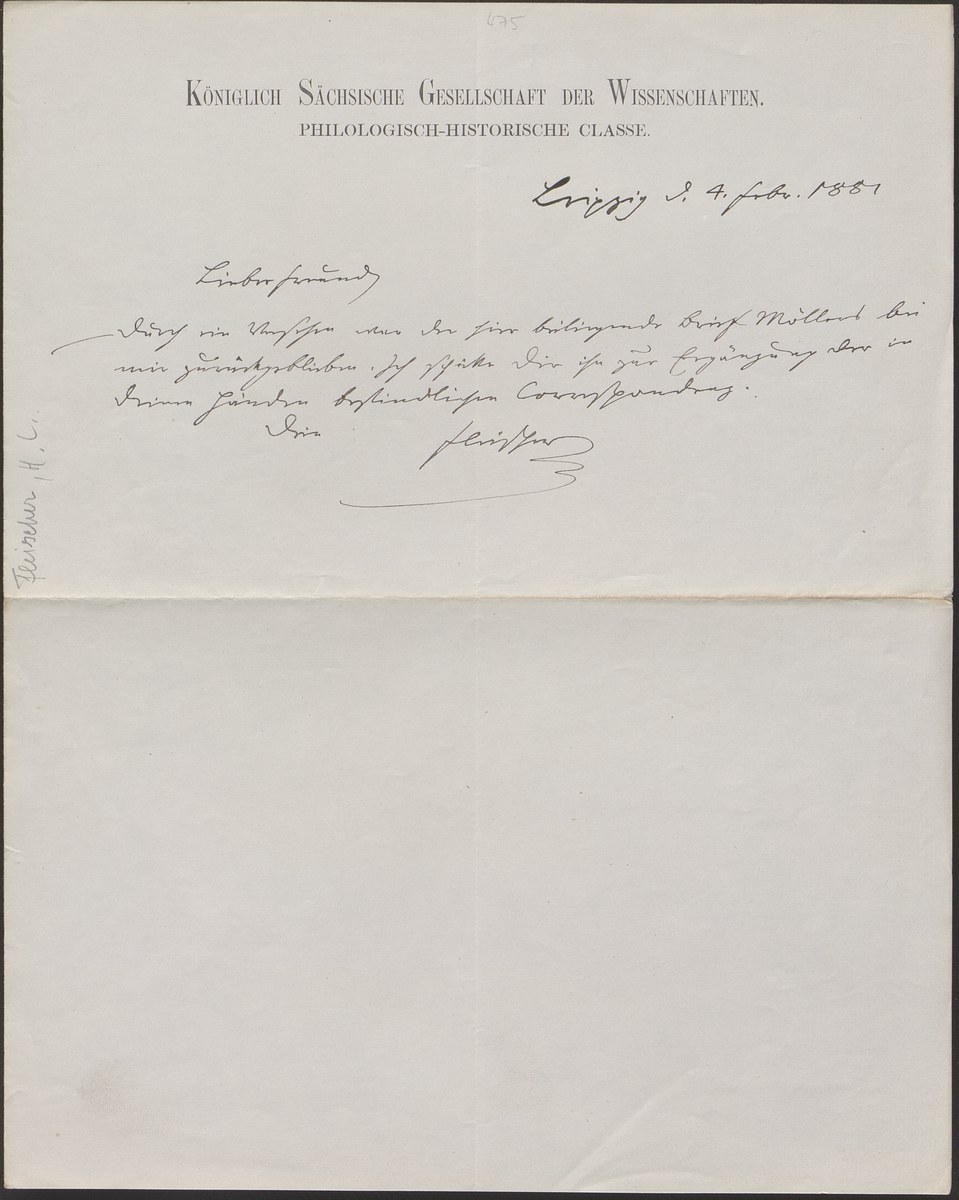 475
Königlich Sächsische Gesellschaft der Wissenschaften.
PHILOLOGISCH-HISTORISCHE CLASSE.
Leipzig d. 4. Febr. 1881
Lieber Freund
Durch ein Versehen war der hier beiliegende Brief Möllers bei
mir zurückgeblieben. Ich schicke Dir ihn zur Ergänzung der in
Deinen Händen befindlichen Correspondenz.
Dein Fleischer
Fleischer, H. L.